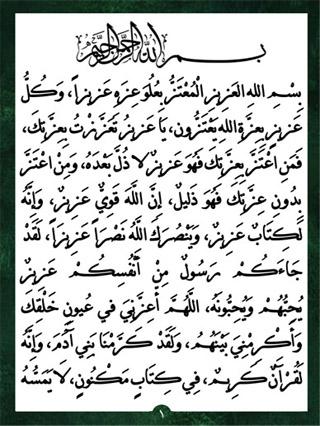 بسم الله الرحمن الرحيم
بِسْمِ اللهِ العَزِيزِ الْمُعْتَزِّ بِعُلُوِّ عِزِّهِ عَزِيزاً، وَكُلُّ
عَزِيزٍ بِعِزَّةِ اللهِ يَعْتَزُّونَ، يَا عَزِيزُ تَعَزَّزْتُ بِعِزَّتِكَ،
فَمَنِ اعْتَزَّ بِعِزَّتِكَ فَهُوَ عَزِيزٌ لَا ذُلَّ بَعْدَهُ، وَمِنْ اعْتَزَّ
بِدُونِ عِزَّتِكَ فَهُوَ ذَلِيلٌ، إِنَّ اللَّهَ قَوِيٌّ عَزِيزٌ، وَإِنَّهُ
لَكِتَابٌ عَزِيزٌ، وَيَنْصُرَكَ اللَّهُ نَصْراً عَزِيزاً، لَقَدْ
جَاءَكُمْ رَسُولٌ مِنْ أَنْفُسِكُمْ عَزِيزٌ
يُحِبُّهُمْ وَيُحِبُّونَهُ، اللَّهُمَّ أَعِزَّنِي فِي عُيُونِ خَلْقِكَ
وَأَكْرِمْنِي بَيْنَهُمْ، وَلَقَدْ كَرَّمْنَا بَنِي آدَمَ، وَإِنَّهُ
لَقُرْآنٌ كَرِيمٌ، فِي كِتَابٍ مَكْنُونٍ، لَا يَمَسُّهُ
١